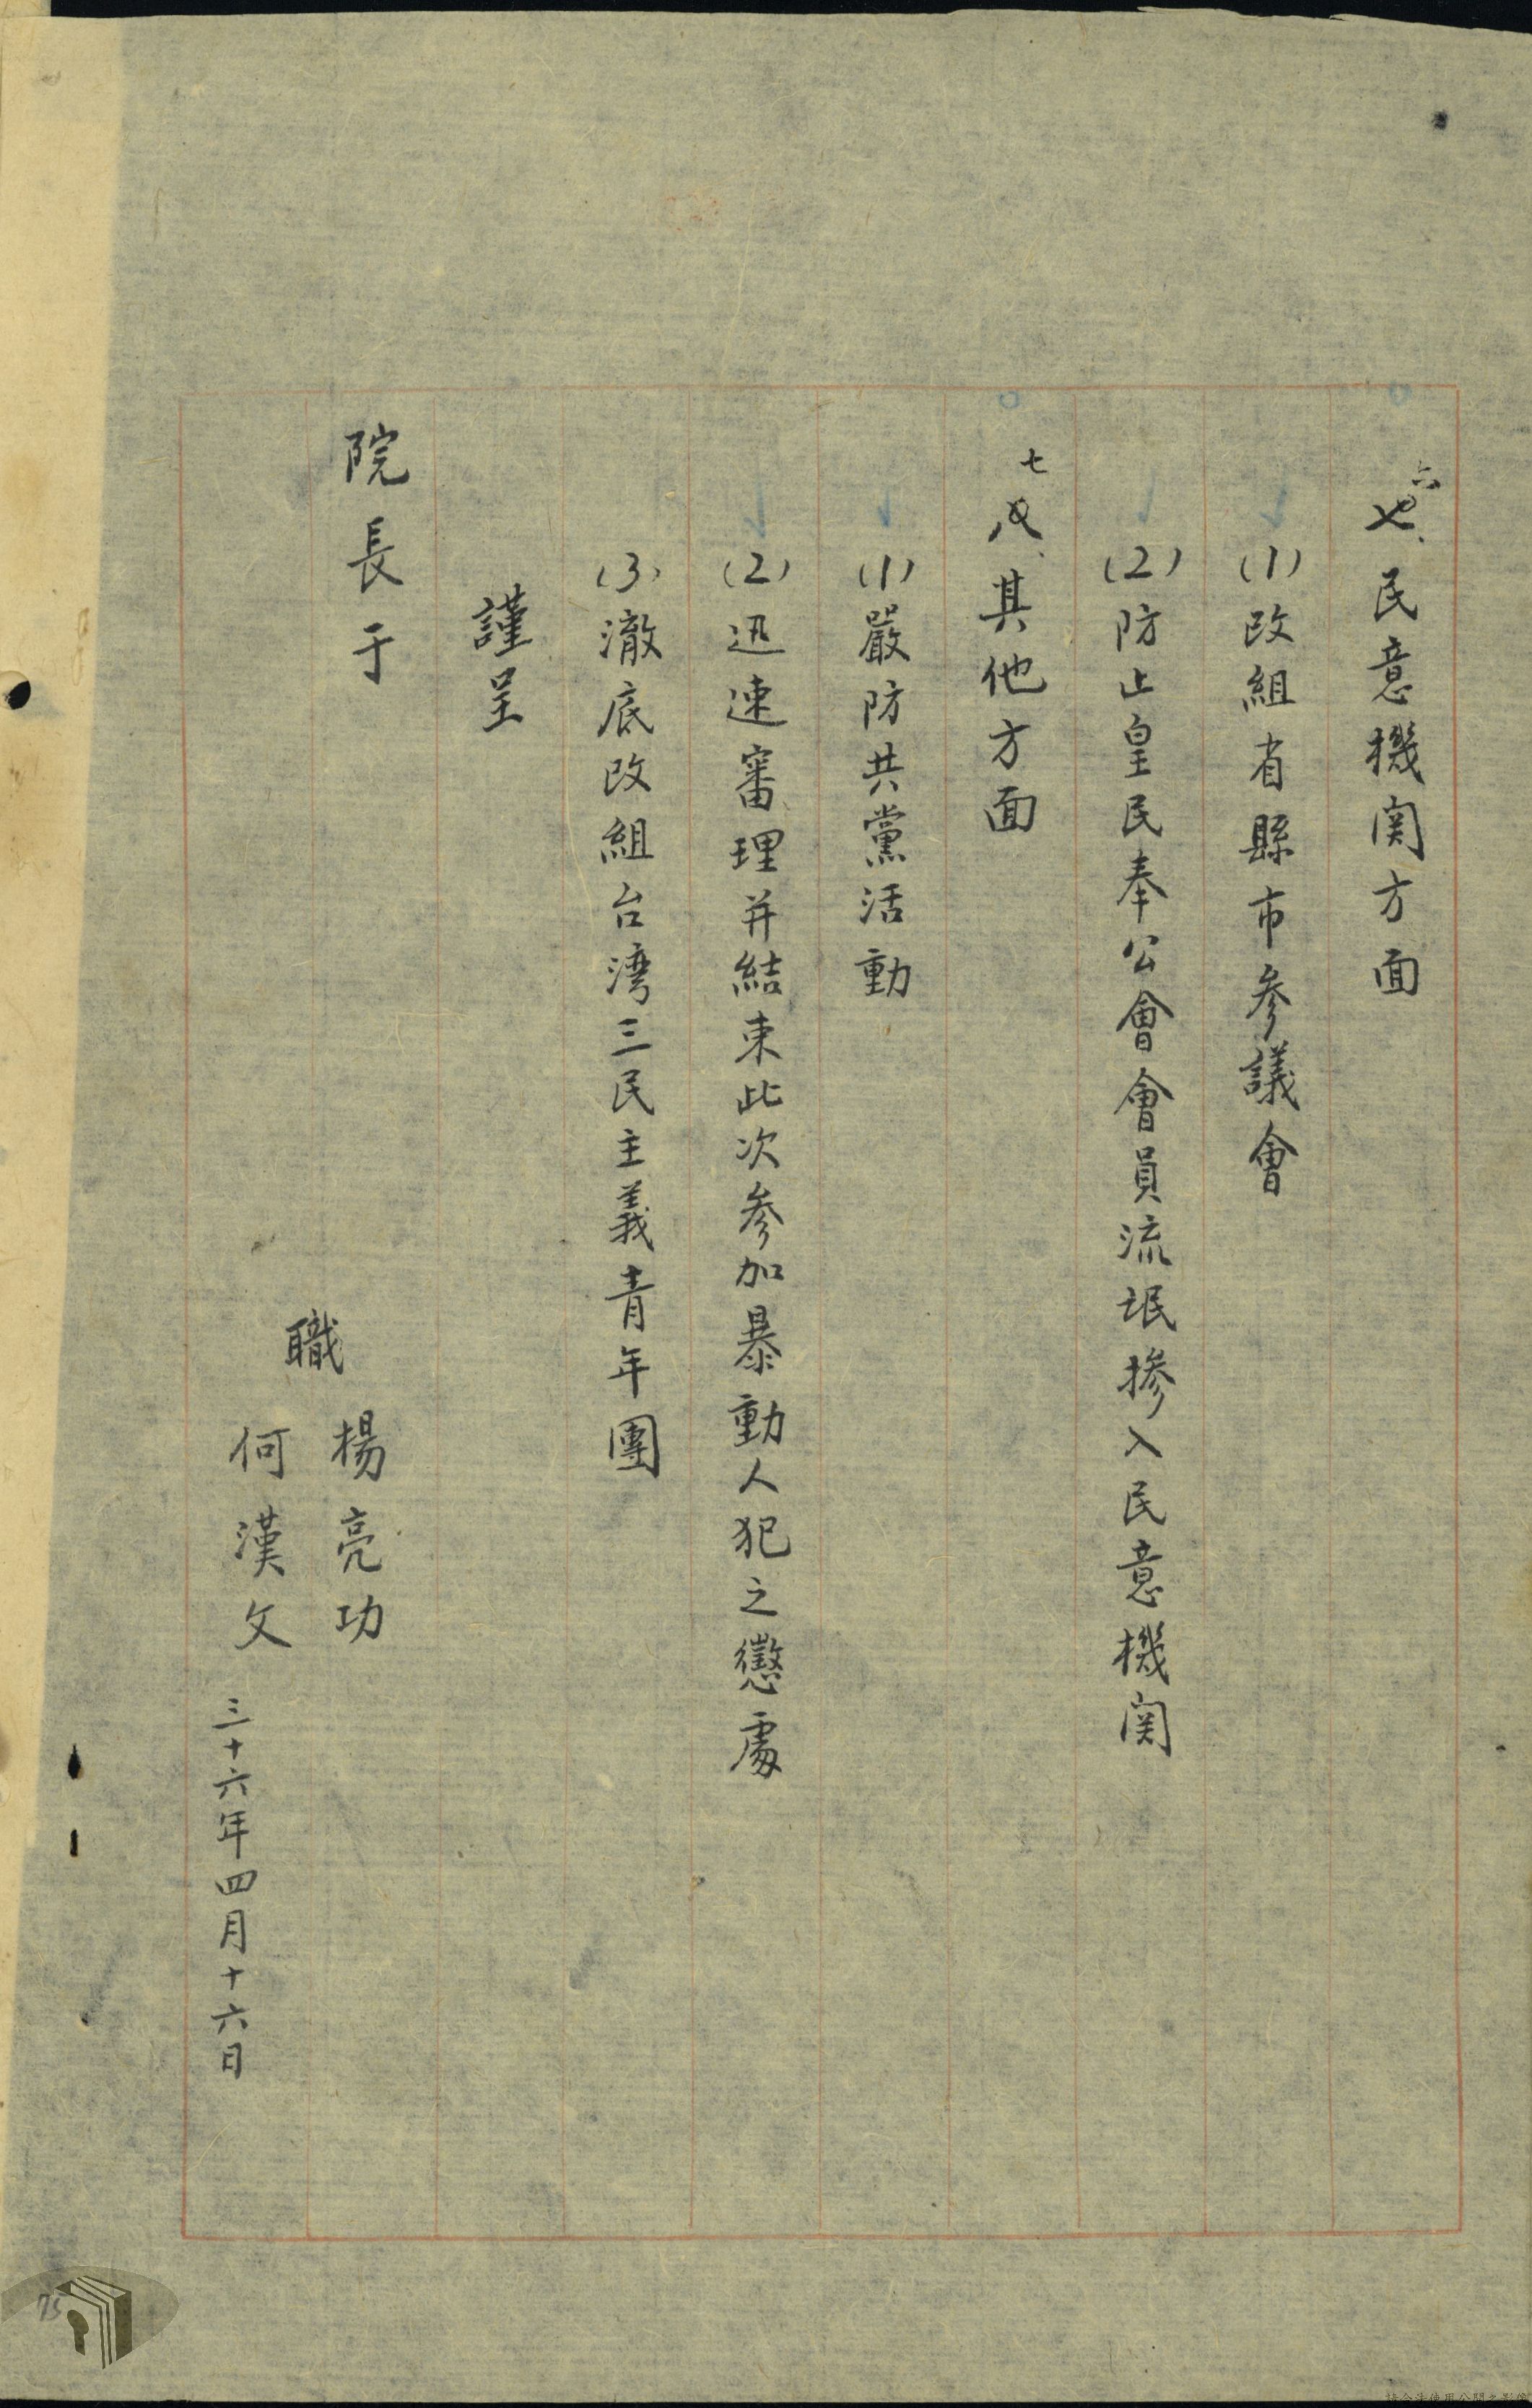 六、民意機関方面
(1)改組省縣市参議會
(2)防止皇民奉公會會員流氓摻入民意機関
七、其他方面
(1)嚴防共黨活動
(2)迅速審理并結束此次参加暴動人犯之懲處
(3)澈底改組台湾三民主義青年團
謹呈
院長于
職
楊亮功
何漢文
三十六年四月十六日
75